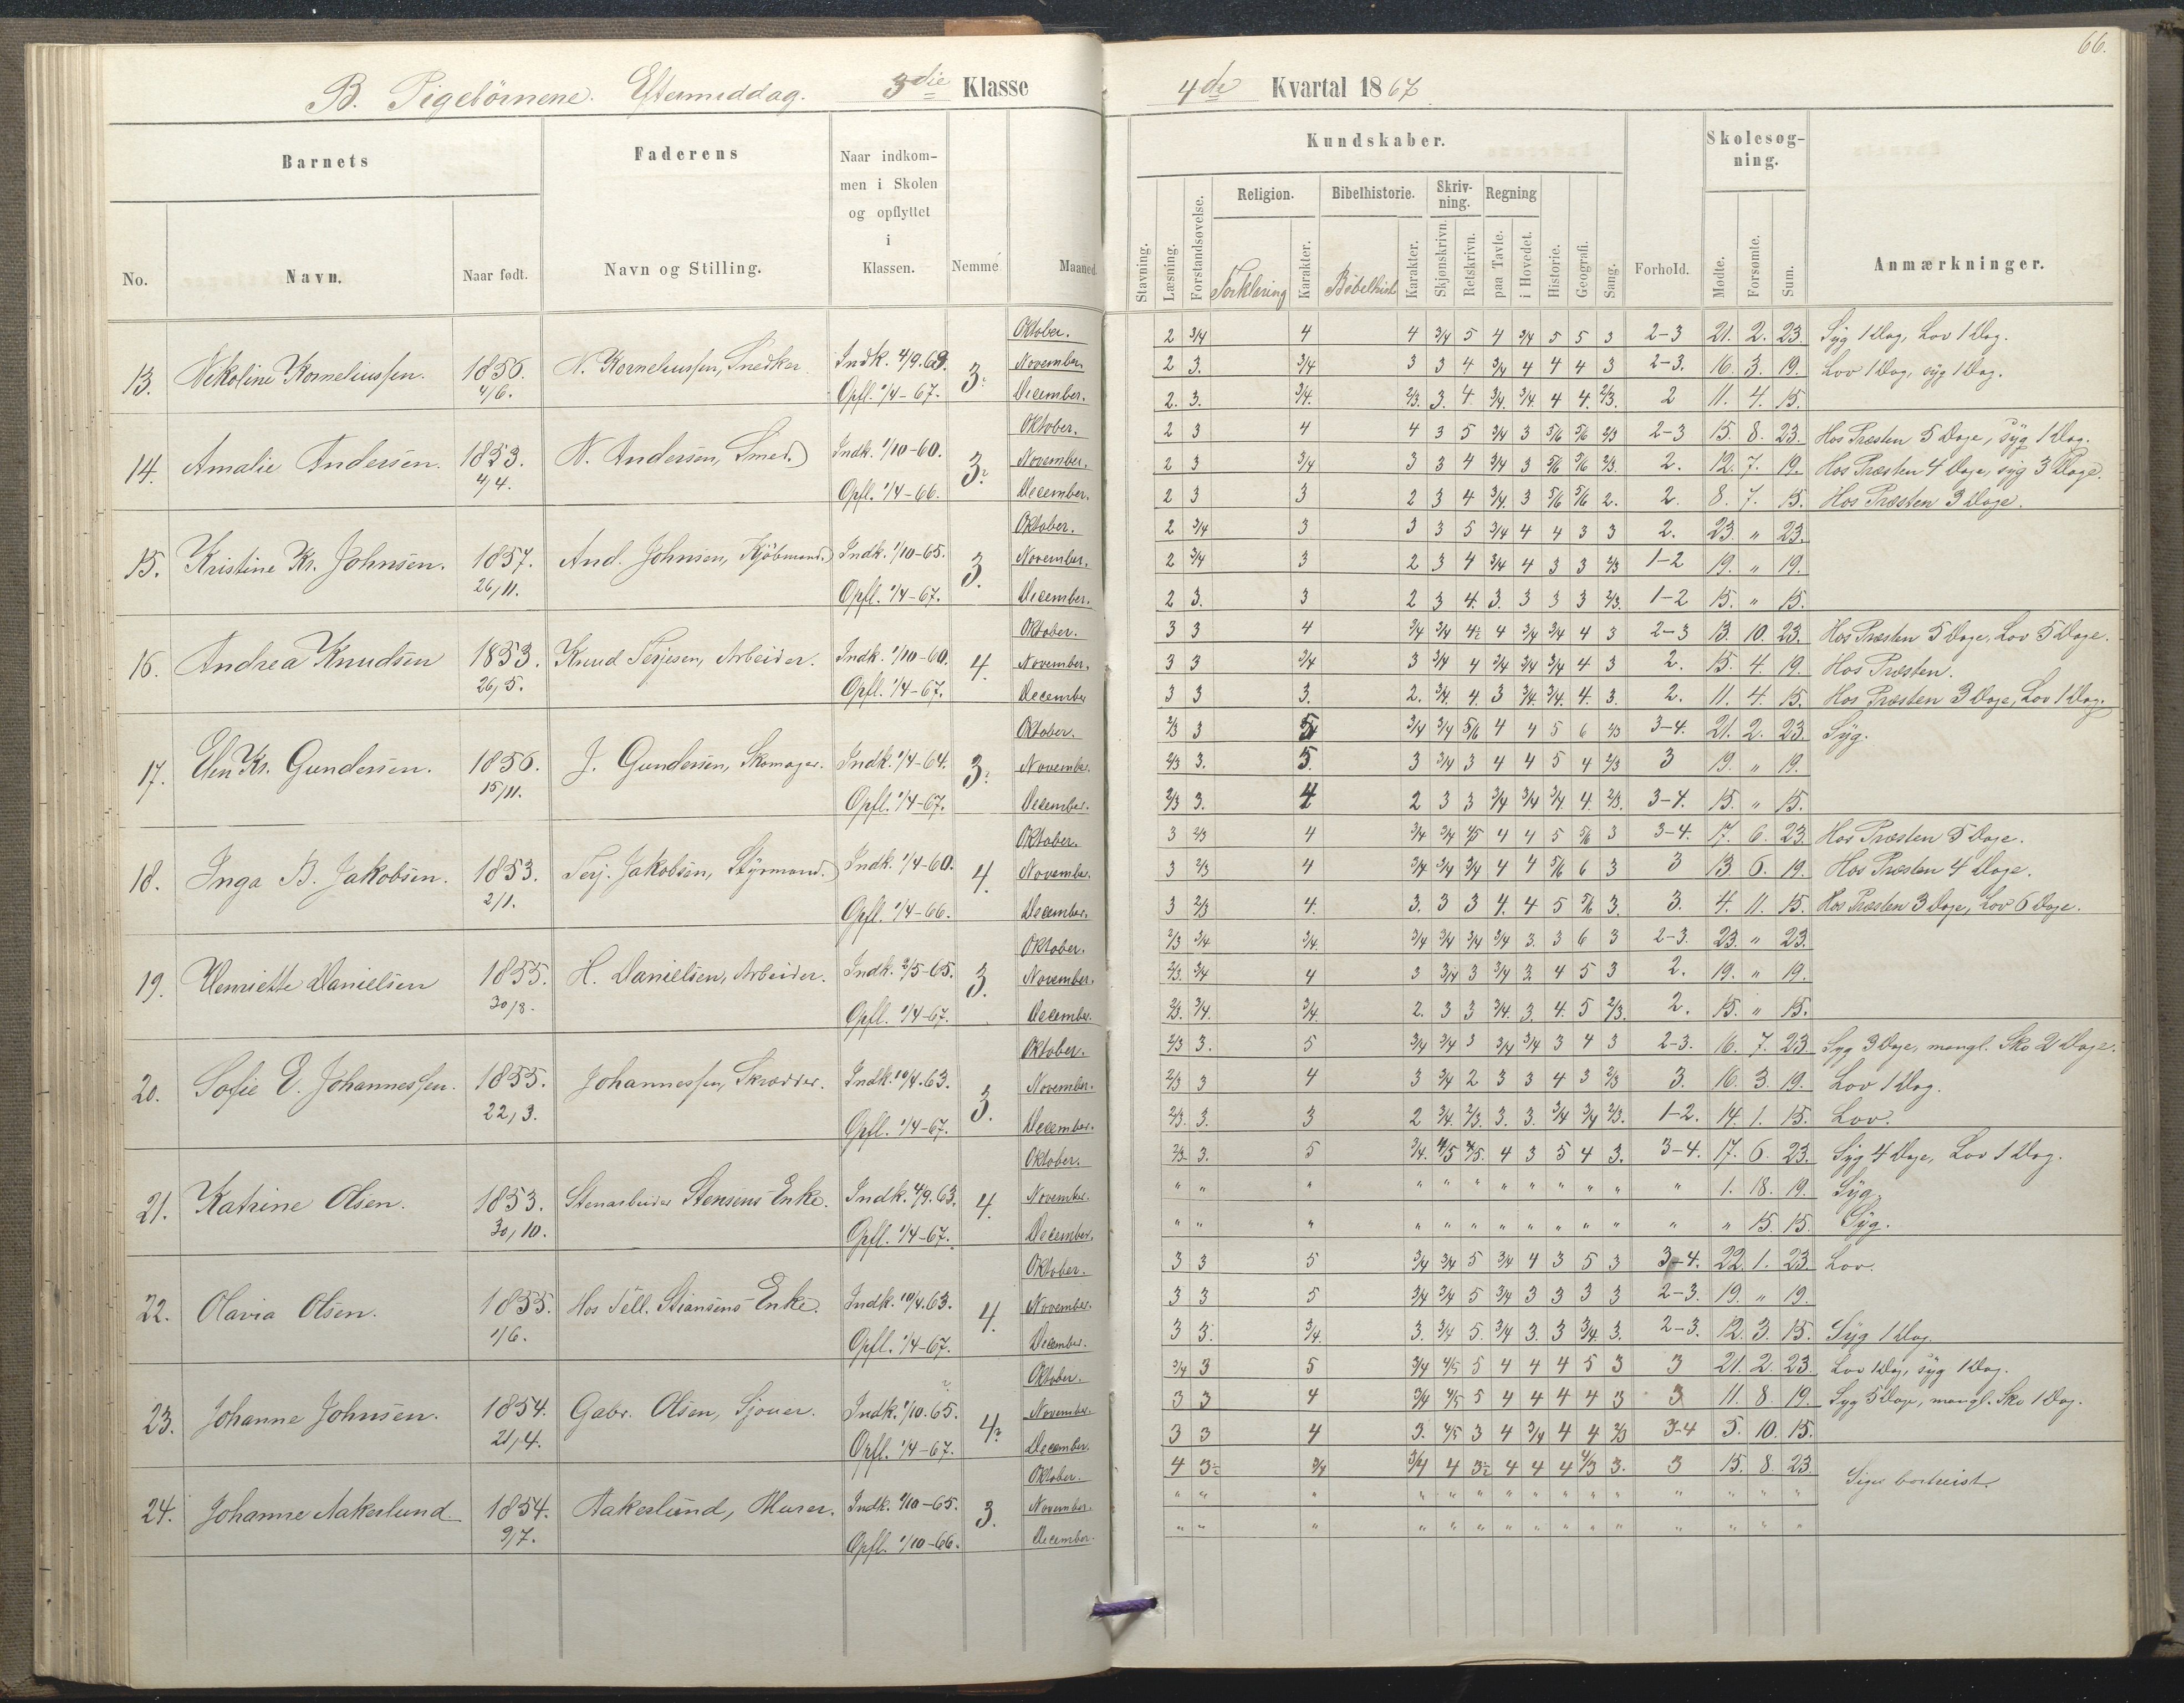 66.
B. Pigebörnene. Eftermiddag. 3die Klasse
4de Kvartal 1867
Barnets
Faderens
Naar indkom-
men i Skolen
og opflyttet
i
Klassen.
No. Navn. Naar født. Navn og Stilling. Nemme Maaned
Kundskaber.
Skolesøg-
ning.
Religion. Bibelhistorie. Skriv-
ning. Regning
Stavning. Læsning. Forstandsøvelse. Forklaring Karakter. Bibelhist Karakter. Skjønskrivn. Retskrivn. paa Tavle. i Hovedet. Historie. Geografi. Sang. Forhold. Mødte. Forsømte. Sum. Anmærkninger.
13. Nikoline Korneliussen. 1856. 4/6. N. Korneliussen, Snedker Indk. 4/9.63. Opfl. 1/4-67. 3.
Oktober. 2 3/4 4 4 3/4 5 4 3/4 5 5 3 2-3 21. 2. 23. Syg 1 Dag, Lov 1 Dag.
November. 2 3. 3/4 3 3 4 3/4 4 4 4 3 2-3. 16. 3. 19. Lov 1 Dag, syg 1 Dag.
December. 2. 3. 3/4. 2/3. 3. 4. 3/4. 3/4. 4 4. 2/3. 2 11. 4. 15.
14. Amalie Andersen. 1853. 4/4. N. Andersen, Smed. Indk. 1/10-60. Opfl. 1/4-66. 3.
Oktober. 2 3 4 4 3 5 3/4 3 5/6 5/6 2/3 2-3 15. 8. 23. Hos Præsten 5 Dage, syg 1 Dag.
November. 2 3 3/4 3 3 4 3/4 3 5/6 5/6 2/3. 2. 12. 7. 19. Hos Præsten 4 Dage, syg 3 Dage.
December. 2 3 3 2 3 4 3/4. 3 5/6 5/6 2. 2. 8. 7. 15. Hos Præsten 3 Dage.
15. Kristine Kr. Johnsen. 1857. 26/11. And. Johnsen, Kjöbmand. Indk. 1/10-65. Opfl. 1/4-67. 3.
Oktober. 2 3/4 3 3 3 5 3/4 4 4 3 3 2. 23. " 23.
November. 2 3/4 3 2 3 4 3/4 4 3 3 2/3 1-2 19. " 19.
December. 2 3. 3 2 3 4. 3. 3 3 3 2/3. 1-2 15. " 15.
16. Andrea Knudsen 1853. 26/5. Knud Terjesen, Arbeider. Indk. 1/10-60. Opfl. 1/4-67. 4.
Oktober. 3 3 4 3/4 3/4 4½ 4 3/4 3/4 4 3 2-3 13. 10. 23. Hos Præsten 5 Dage, Lov 5 Dage.
November. 3 3 3/4 3 3/4 4 3/4 3/4 3/4 4 3 2. 15. 4. 19. Hos Præsten.
December 3 3 3. 2. 3/4. 4. 3 3/4. 3/4. 4. 3. 2. 11. 4. 15. Hos Præsten 3 Dage, Lov 1 Dag.
17. Elen Kr. Gundersen. 1856. 15/11. J. Gundersen, Skomager. Indk. 1/4-64. Opfl. 1/4-67. 3.
Oktober. 2/3 3 5 3/4 3/4 5/6 4 4 5 6 2/3 3-4. 21. 2. 23. Syg.
November. 2/3 3. 5. 3 3/4 3 4 4 5 4 2/3 3 19. " 19.
December. 2/3 3. 4 2 3 3 3/4 3/4 3/4 4. 2/3. 3-4. 15. " 15.
18. Inga B. Jakobsen. 1853. 2/1. Terj. Jakobsen, Styrmand. Indk. 1/4-60. Opfl. 1/4-66. 4.
Oktober. 3 2/3 4 3/4 3/4 4/5 4 4 5 5/6 3 3-4. 17. 6. 23. Hos Præsten 5 Dage.
November. 3 2/3 4 3/4 3/4 3/4 4 4 5/6 6 3 3 13. 6. 19. Hos Præsten 4 Dage.
December. 3 2/3 4. 3. 3 3 4. 4 5 5/6 3. 3. 4. 11. 15. Hos Præsten 3 Dage, Lov 6 Dage.
19. Henriette Danielsen 1855. 30/8. H. Danielsen, Arbeider. Indk. 3/5-65. Opfl. 1/4-67. 3.
Oktober. 2/3 3/4 3/4. 3/4 3/4 3/4 3/4 3. 3 6 3 2-3. 23. " 23.
November. 2/3. 3/4 4 3 3/4 3 3/4 3 4 5 3 2. 19. " 19.
December. 2/3. 3/4. 3/4. 2. 3 3 3/4. 3. 4. 5 2/3. 2. 15. " 15.
20. Sofie E. Johannessen. 1855. 22/3. Johannessen, Skrædder. Indk. 10/4.63. Opfl. 1/4-67. 3.
Oktober. 2/3 3. 5 3/4 3/4 3 3/4 3/4 3 4 3 2-3. 16. 7. 23 Syg 3 Dage, mangl. Sko 2 Dage.
November. 2/3 3 4 3 3/4 2 3 3 4 3 2/3 3. 16. 3. 19. Lov 1 Dag.
December. 2/3. 3. 3 2 3/4. 2/3. 3. 3. 3/4 3/4 2/3. 1-2. 14. 1. 15. Lov.
21. Katrine Olsen. 1853. 30/10. Stenarbeider Stensens Enke. Indk. 4/9.63. Opfl. 1/4-67. 4.
Oktober. 2/3 3. 5 3/4. 4/5 4/5. 4 3 5 4 3. 3-4. 17. 6. 23. Syg 4 Dage, Lov 1 Dag.
November. " " " " " " " " " " " " 1. 18. 19. Syg.
December. " " " " " " " " " " " " " 15. 15. Syg.
22. Olavia Olsen. 1855. 1/6. Hos Tell. Stiansens Enke. Indk. 10/4.63. Opfl. 1/4-67. 4.
Oktober. 3 3 5 3/4 3/4 5 3/4 4 3 5 3 3-4. 22. 1. 23. Lov.
November. 3 3 5 3/4 3/4 5 3/4 3 3 3 3 2-3. 19. " 19.
December. 3 3. 3/4. 3. 3/4 5. 3/4 3. 3 3/4 3. 2-3. 12. 3. 15. Syg 1 Dag.
23. Johanne Johnsen. 1854. 21/4. Gabr. Olsen, Sjouer. Indk. 1/10.65. Opfl. 1/4-67. 4
Oktober. 3/4 3 5 3/4 4/5 5 4 4 4 5 3 3 21. 2. 23. Lov 1 Dag, syg 1 Dag.
November. 3 3 4 3/4 4/5 5 4 4 4 4 3 3 11. 8. 19. Syg 5 Dage, mangl. Sko 1 Dag.
December. 3 3 4 3. 4/5 3 4 3/4 4 4 2/3 3-4 5. 10. 15.
24. Johanne Aakerlund 1854. 9/7. Aakerlund, Murer. Indk. 1/10-65. Opfl. 1/10-66. 3.
Oktober. 4 3½ 3/4 3/4 4 3½ 4 4 4 4/3 3. 3 15. 8. 23. Siges bortreist.
November. " " " " " " " " " " " " " " "
December. " " " " " " " " " " " " " " "